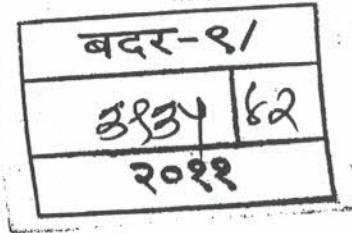 बदर-९/
३९३५ ४२
२०११